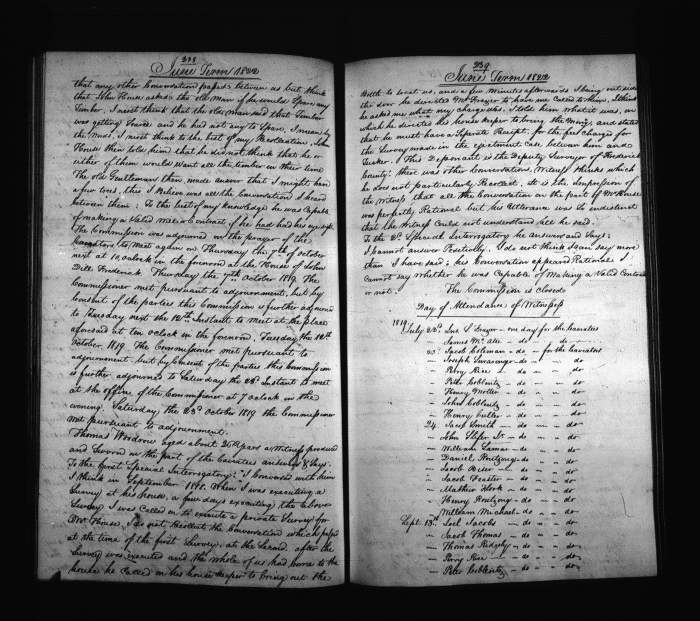 238
June Term 1822
that any other Conversation passed between us but think
that John House asked the old man if he would spare any
Timber, I must think that the old man said that Timber
was getting scarce and he had not any to spare, I mean by
the Must, I must think to the best of my Recollection, John
House then told him that he did not think that he or
either of them would want all the timber in their time
The old Gentleman then made answer that I might haul
a few trees, this I believe was all the Conversation I heard
between them: To the best of my knowledge he was Capable
of making a Valid Deed or Contract if he had had his eye sight
The Commission was adjourned on the prayer of the
to meet again on Thursday the 7th of October
next at 10 oclock in the forenoon at the House of John
Dill Frederick Thursday the 7th October 1819. The
Commissioner met pursuant to adjournment, but by
Consent of the parties this Commission is further adjourned
to Tuesday next the 12th Instant to meet at the place
aforesaid at ten oclock in the forenoon. Tuesday the 12th
October 1819. The Commissioner met pursuant to
adjournment but by Consent of the parties this Commission
is further adjourned to Saturday the 23d Instant to meet
at the office of the Commissioner at 7 oclock in the
evening. Saturday the 23d October 1819 the Commissioner
met pursuant to adjournment.
Thomas Woodrow aged about 26 Years a Witness produced
and Sworn on the part of the Caviators answers & Says:
To the first Special Interrogatory: I Conversed with him
I think in September 1818. When I was executing a
Survey at his house, a few days executing the above
Survey I was Called on to execute a private Survey for
Mr House, I do not Recollect the Conversation which passed
at the time of the first Survey, at the Second, after the
Survey was executed and the whole of us had come to the
house he Called on his house keeper to bring out the
239
June Term 1822
Bottle to treat us, and a few Minutes afterwards I being outside
the door he directed Mr Grayer to have me Called to him, I think
he asked me what my charge was, I told him what it was, on
which he directed his house keeper to bring the Money, and stated
that he must have a Seperate Receipt, for the fees charged for
the Survey made in the ejectment case, between him and
Tucker. This Deponant is the Deputy Surveyor of Frederick
County: there was other Conversation, Witness thinks which
he does not particularly Recollect. It is the impression of
the Witness that all the Conversation on the part of Mr House
was perfectly Rational but his Utterance was so indistinct
that the Witness Could not understand all he said.
To the 2d Special Interrogatory he answers and Says:
I cannot answer Positively. I do not think I can say more
than I have said; his Conversation appeared Rational I
cannot say whether he was Capable of Making a Valid Contract
or not.
The Commission is Closed
Day of Attendance of Witnesses
1819 July 22d Jno L Grayer - one day for the Caviators
James Mc - do - do
23d Jacob Coleman - do - for the Caveators
Joseph Swearingen - do - do
Perry Rice - do - do
Peter Coblentz - do - do
Henry Motter - do - do
John Coblentz - do - do
Henry Culler - do - do
24 Jacob Smith - do - do
John Sr - do - do
William Lamar - do - do
Daniel Routzong - do - do
Jacob - do - do
Jacob - do - do
Mathew - do - do
Henry Routzong - do - do
William Michael - do - do
Sept. 13th Joel Jacobs - do - do
Jacob Thomas - do - do
Thomas Ridgely - do - do
Perry Rice - do - do
Peter Coblentz - do - do